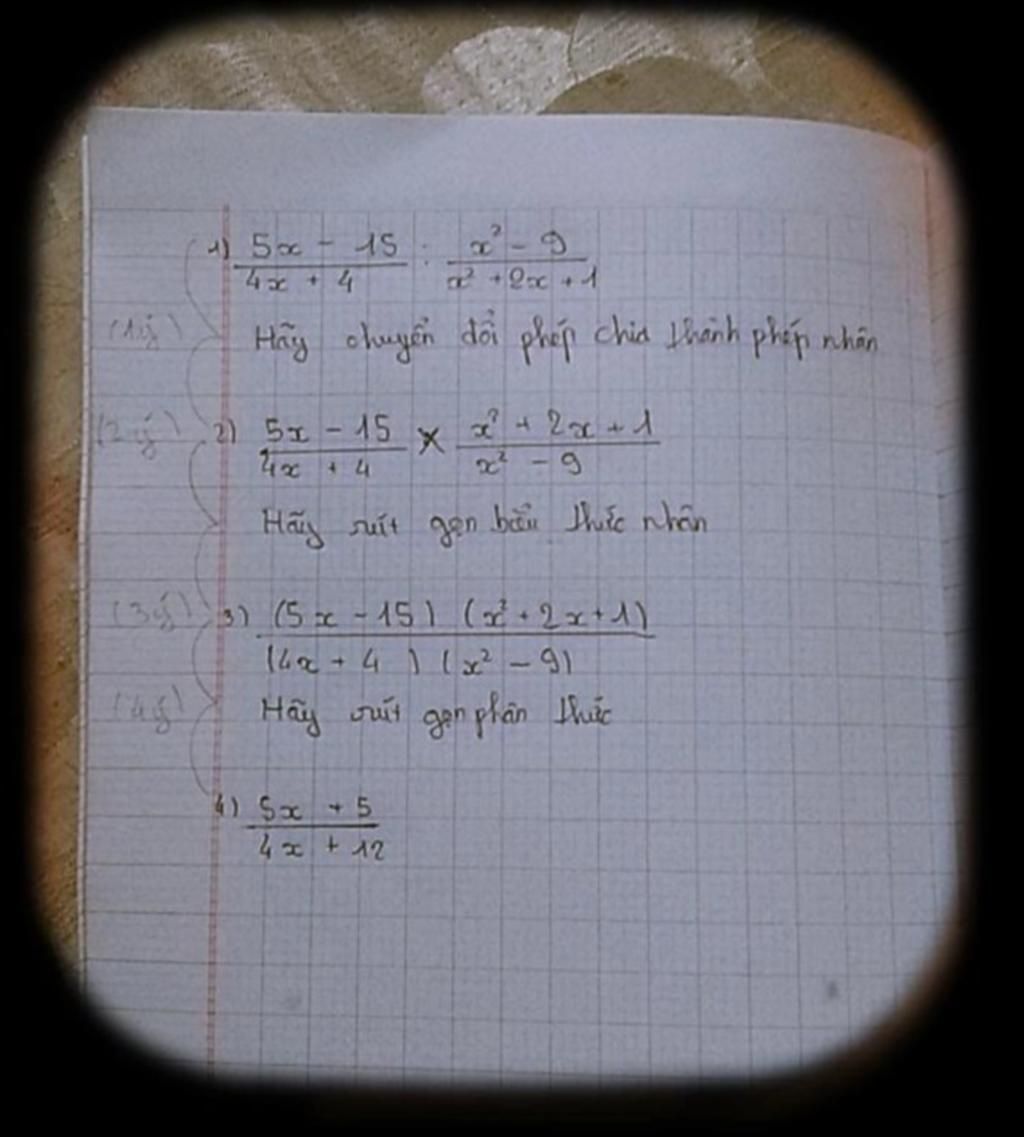 1) 5x - 15 / 4x + 4 : x² - 9 / x² + 2x + 1
(1ý) Hãy chuyển đổi phép chia thành phép nhân
(2ý) 2) 5x - 15 / 4x + 4 × x² + 2x + 1 / x² - 9
Hãy rút gọn biểu thức nhân
(3ý) 3) (5x - 15) (x² + 2x + 1) / (4x + 4) (x² - 9)
(4ý) Hãy rút gọn phân thức
4) 5x + 5 / 4x + 12